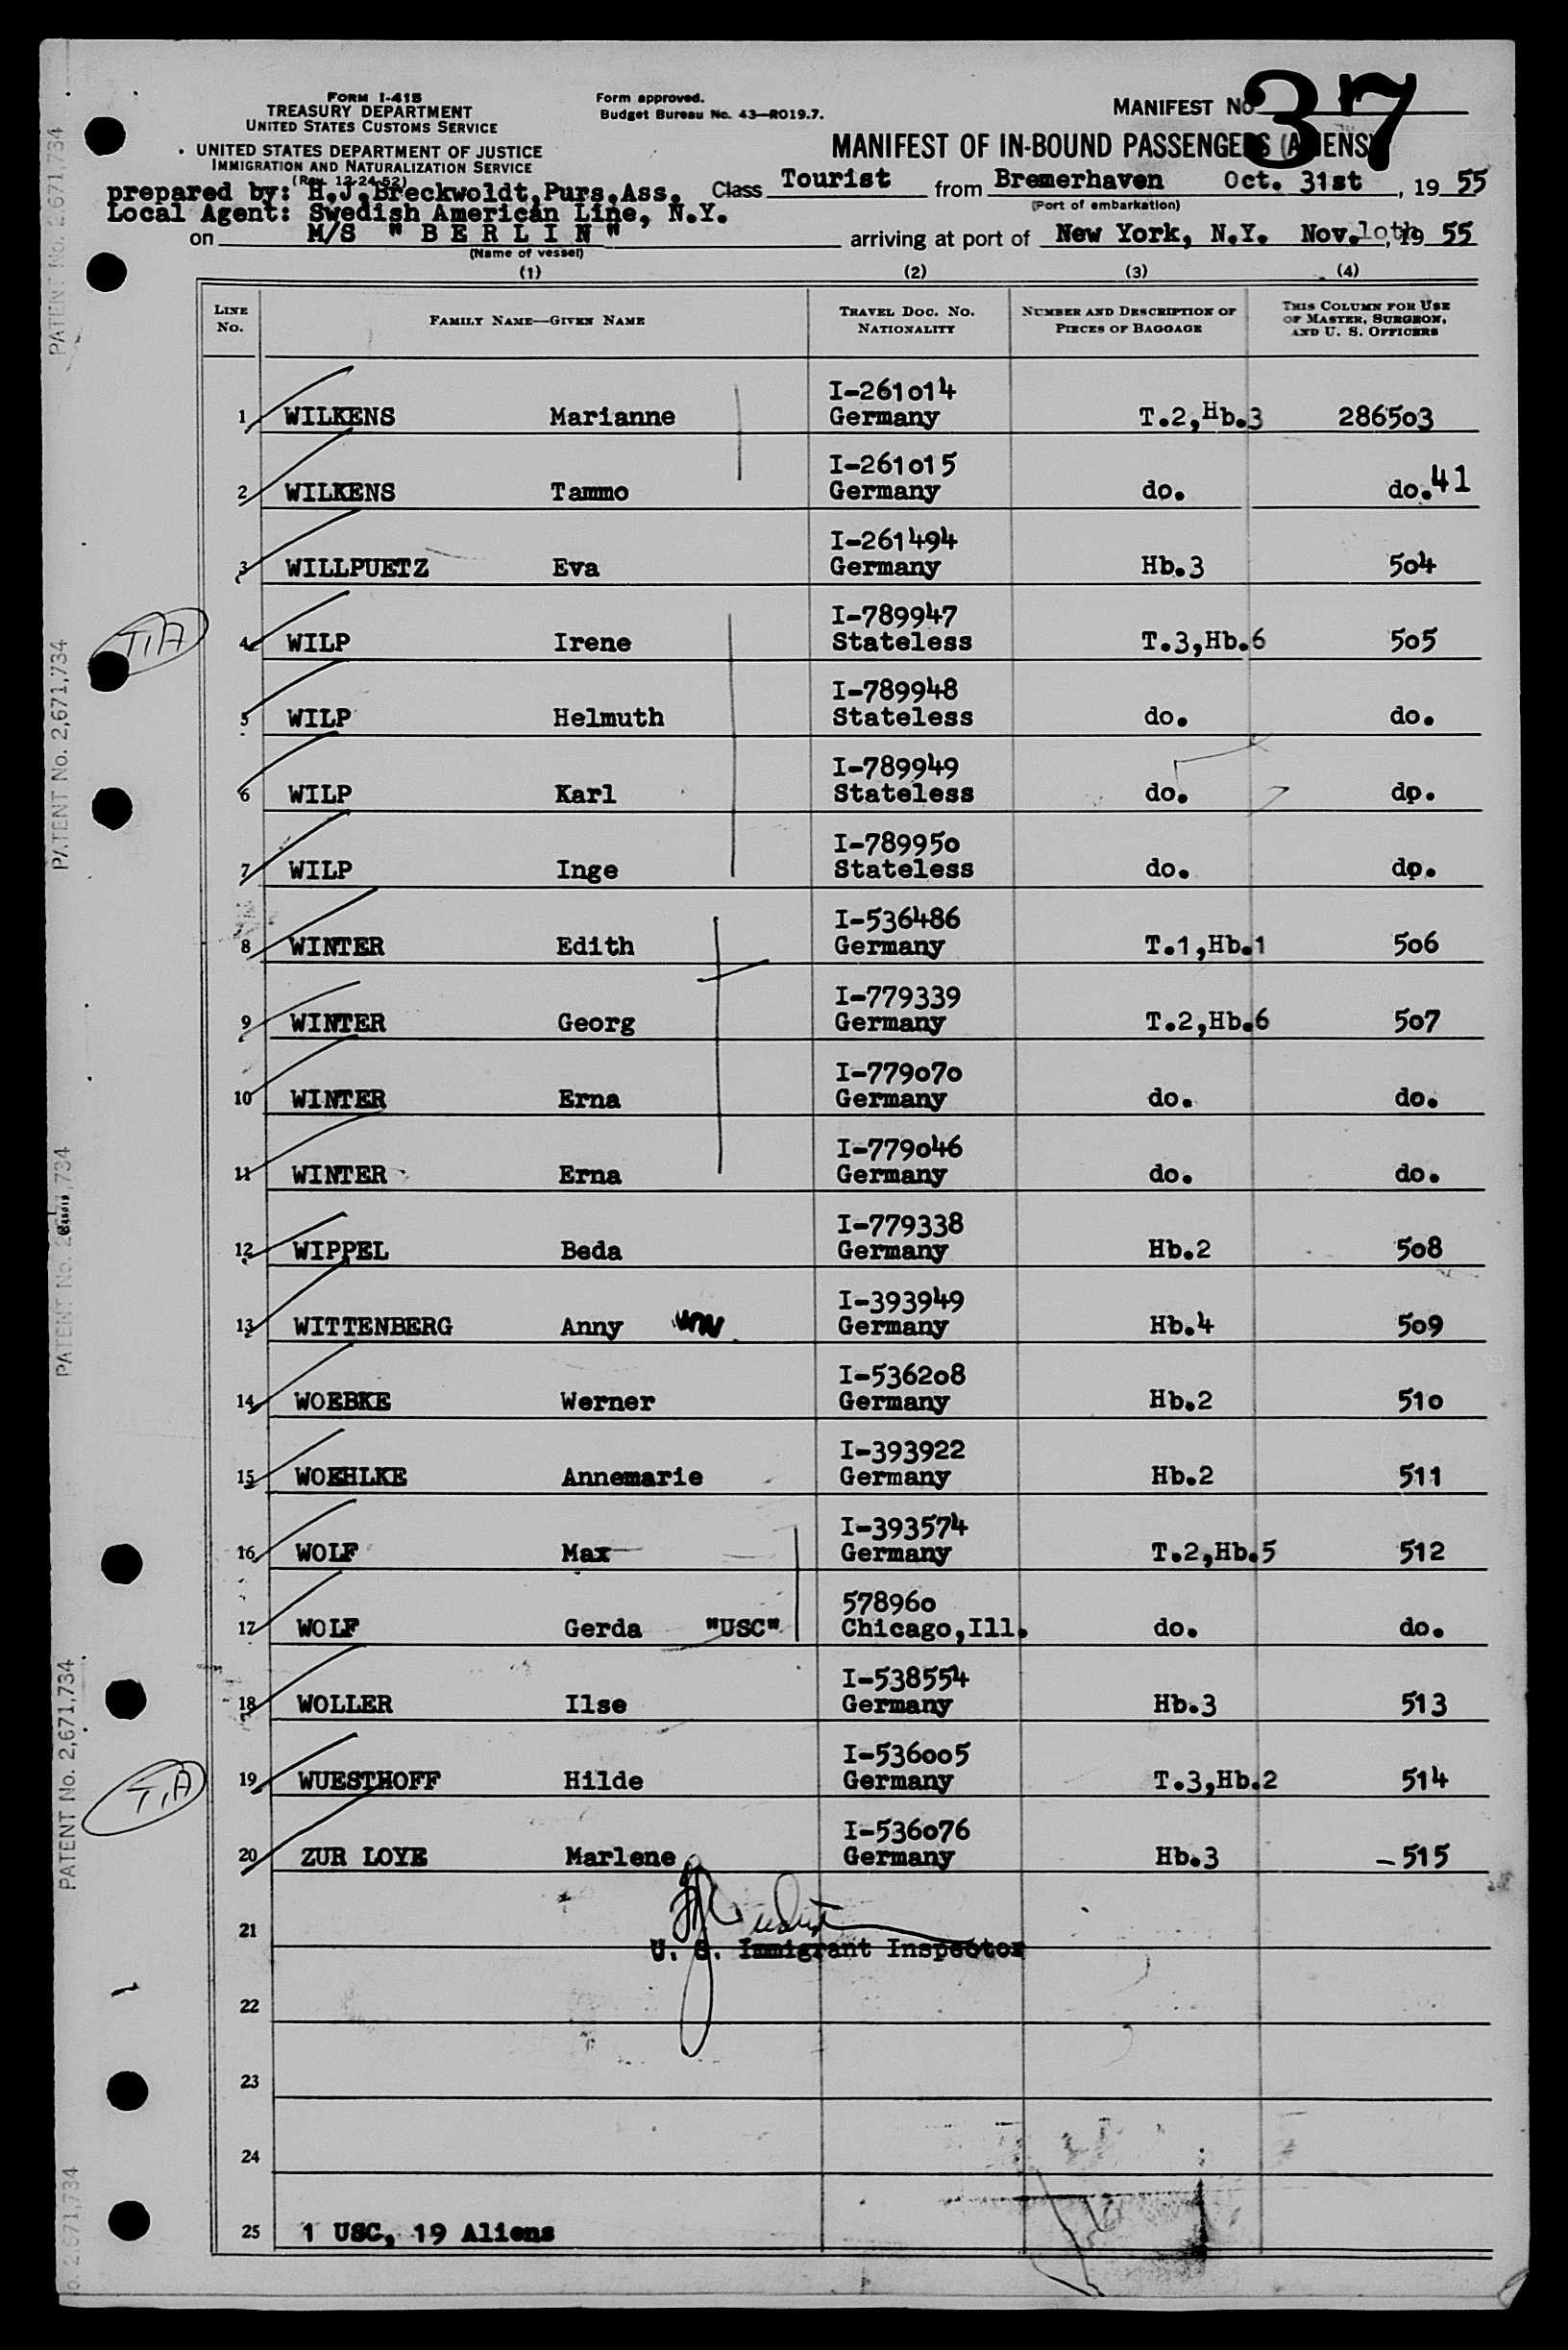 FORM I-418
TREASURY DEPARTMENT
UNITED STATES CUSTOMS SERVICE
UNITED STATES DEPARTMENT OF JUSTICE
IMMIGRATION AND NATURALIZATION SERVICE
(Rev. 12-24-52)
Form approved.
Budget Bureau No. 43—RO19.7.
MANIFEST No 37
MANIFEST OF IN-BOUND PASSENGERS (ALIENS)
prepared by: H.J.Breckwoldt,Purs.Ass. Class Tourist from Bremerhaven Oct. 31st, 1955
(Port of embarkation)
Local Agent: Swedish American Line, N.Y.
on M/S " B E R L I N " arriving at port of New York, N.Y. Nov.10th, 1955
(Name of vessel)
(1) (2) (3) (4)
LINE No. FAMILY NAME—GIVEN NAME TRAVEL DOC. NO. NATIONALITY NUMBER AND DESCRIPTION OF PIECES OF BAGGAGE THIS COLUMN FOR USE OF MASTER, SURGEON, AND U. S. OFFICERS
I-261014
1 WILKENS Marianne Germany T.2,Hb.3 286503
I-261015
2 WILKENS Tammo Germany do. do.41
I-261494
3 WILLPUETZ Eva Germany Hb.3 504
I-789947
T,A 4 WILP Irene Stateless T.3,Hb.6 505
I-789948
5 WILP Helmuth Stateless do. do.
I-789949
6 WILP Karl Stateless do. do.
I-789950
7 WILP Inge Stateless do. do.
I-536486
8 WINTER Edith Germany T.1,Hb.1 506
I-779339
9 WINTER Georg Germany T.2,Hb.6 507
I-779070
10 WINTER Erna Germany do. do.
I-779046
11 WINTER Erna Germany do. do.
I-779338
12 WIPPEL Beda Germany Hb.2 508
I-393949
13 WITTENBERG Anny Germany Hb.4 509
I-536208
14 WOEBKE Werner Germany Hb.2 510
I-393922
15 WOEHLKE Annemarie Germany Hb.2 511
I-393574
16 WOLF Max Germany T.2,Hb.5 512
578960
17 WOLF Gerda "USC" Chicago,Ill. do. do.
I-538554
18 WOLLER Ilse Germany Hb.3 513
I-536005
T,A 19 WUESTHOFF Hilde Germany T.3,Hb.2 514
I-536076
20 ZUR LOYE Marlene Germany Hb.3 -515
21
U. S. Immigrant Inspector
22
23
24
25 1 USC, 19 Aliens
PATENT No. 2,671,734
PATENT No. 2,671,734
PATENT No. 2,671,734
PATENT No. 2,671,734
2,671,734